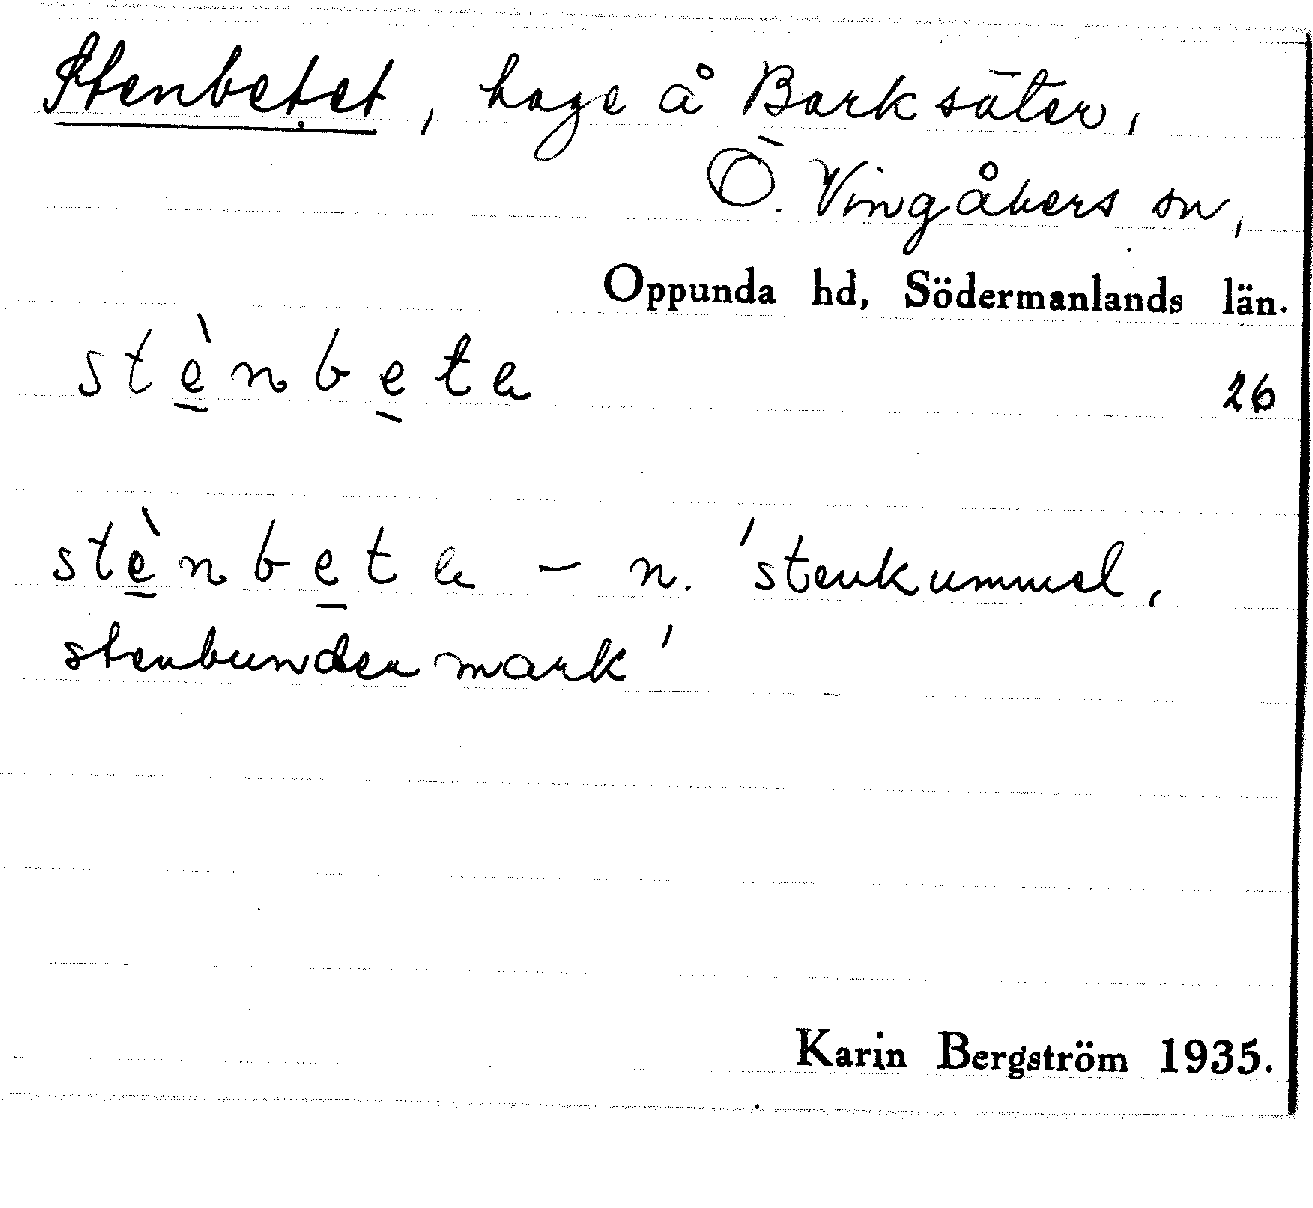 Stenbetet, hage å Barksäter,
Ö. Vingåkers sn,
Oppunda hd, Södermanlands län.
stè̱nbe̱te 26
stè̱nbe̱te – n. 'stenkummel,
stenbunden mark'
Karin Bergström 1935.